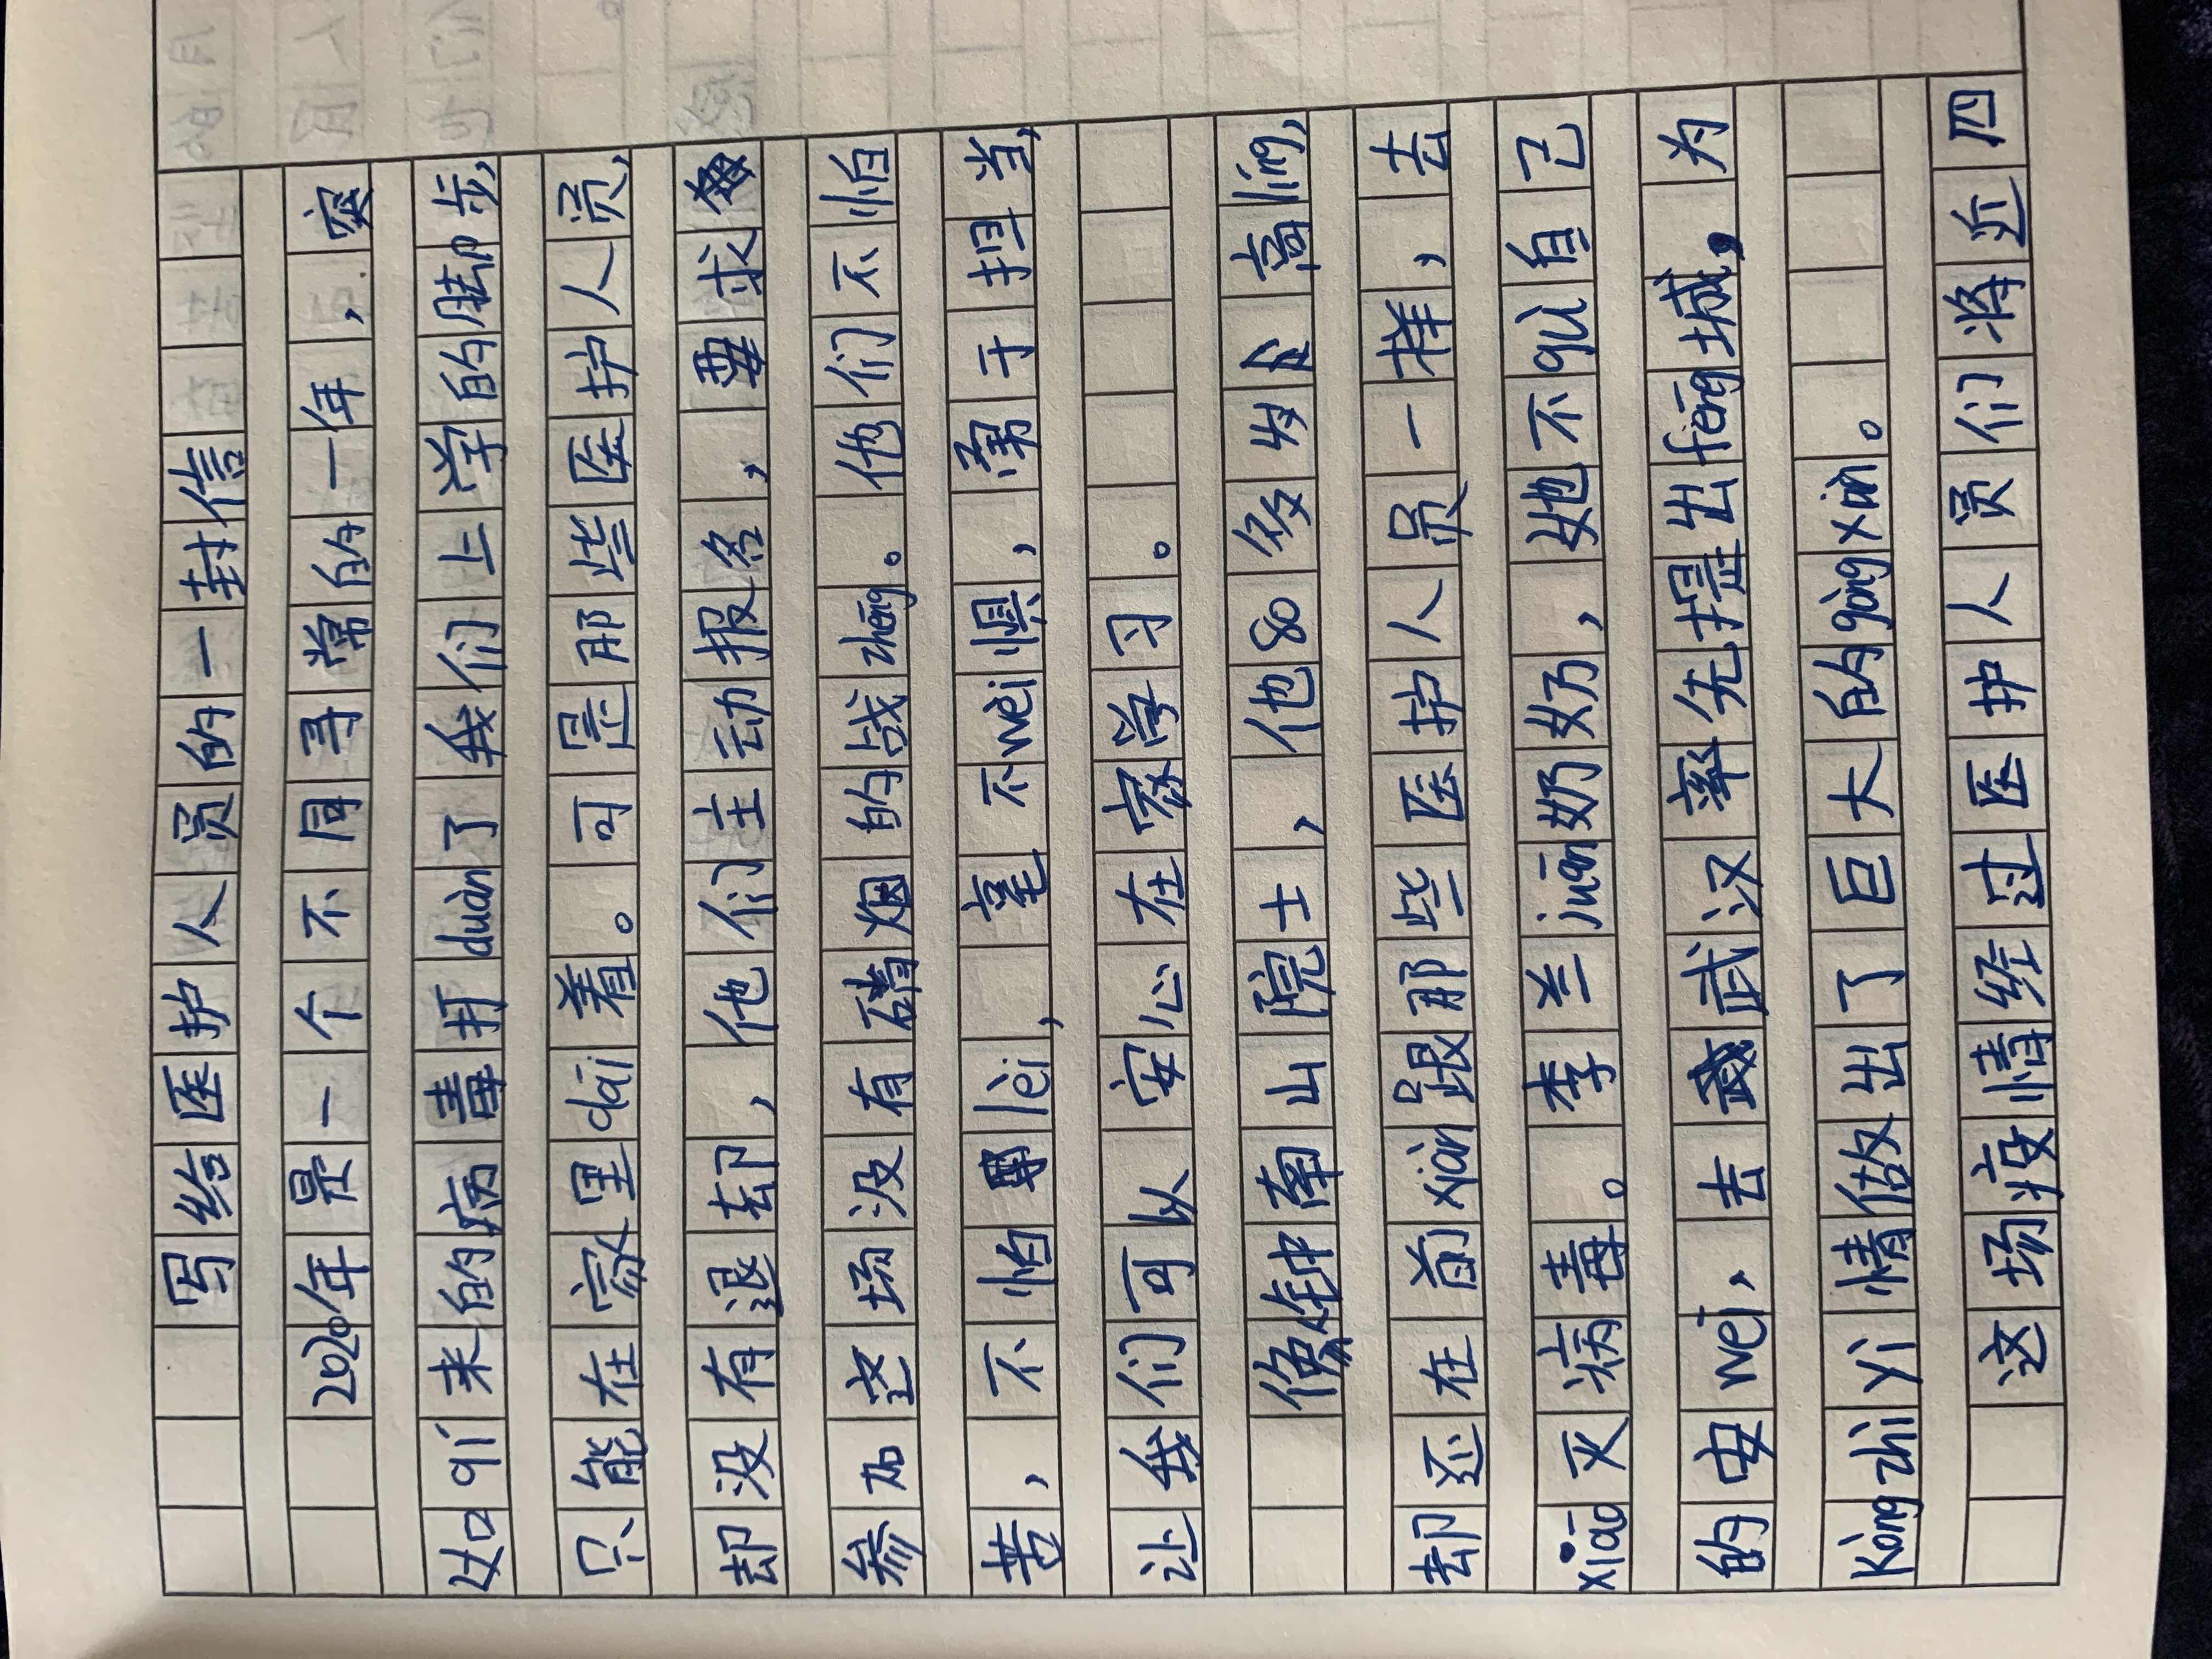 写给医护人员的一封信
2020年是一个不同寻常的一年，突
如qí来的病毒打duàn了我们上学的脚步，
只能在家里dāi着。可是那些医护人员，
却没有退却，他们主动报名，要求
参加这场没有硝烟的战zhēng。他们不怕
苦，不怕lèi，毫不wèi惧，勇于担当，
让我们可以安心在家学习。
像钟南山院士，他80多岁高líng，
却还在前xiàn跟那些医护人员一样，去
xiāo灭病毒。李兰juān奶奶，她不gù自己
的安wēi，去武汉率先提出fēng城，为
Kòngzhì yì情做出了巨大的gòngxiàn。
这场疫情经过医护人员们将近四